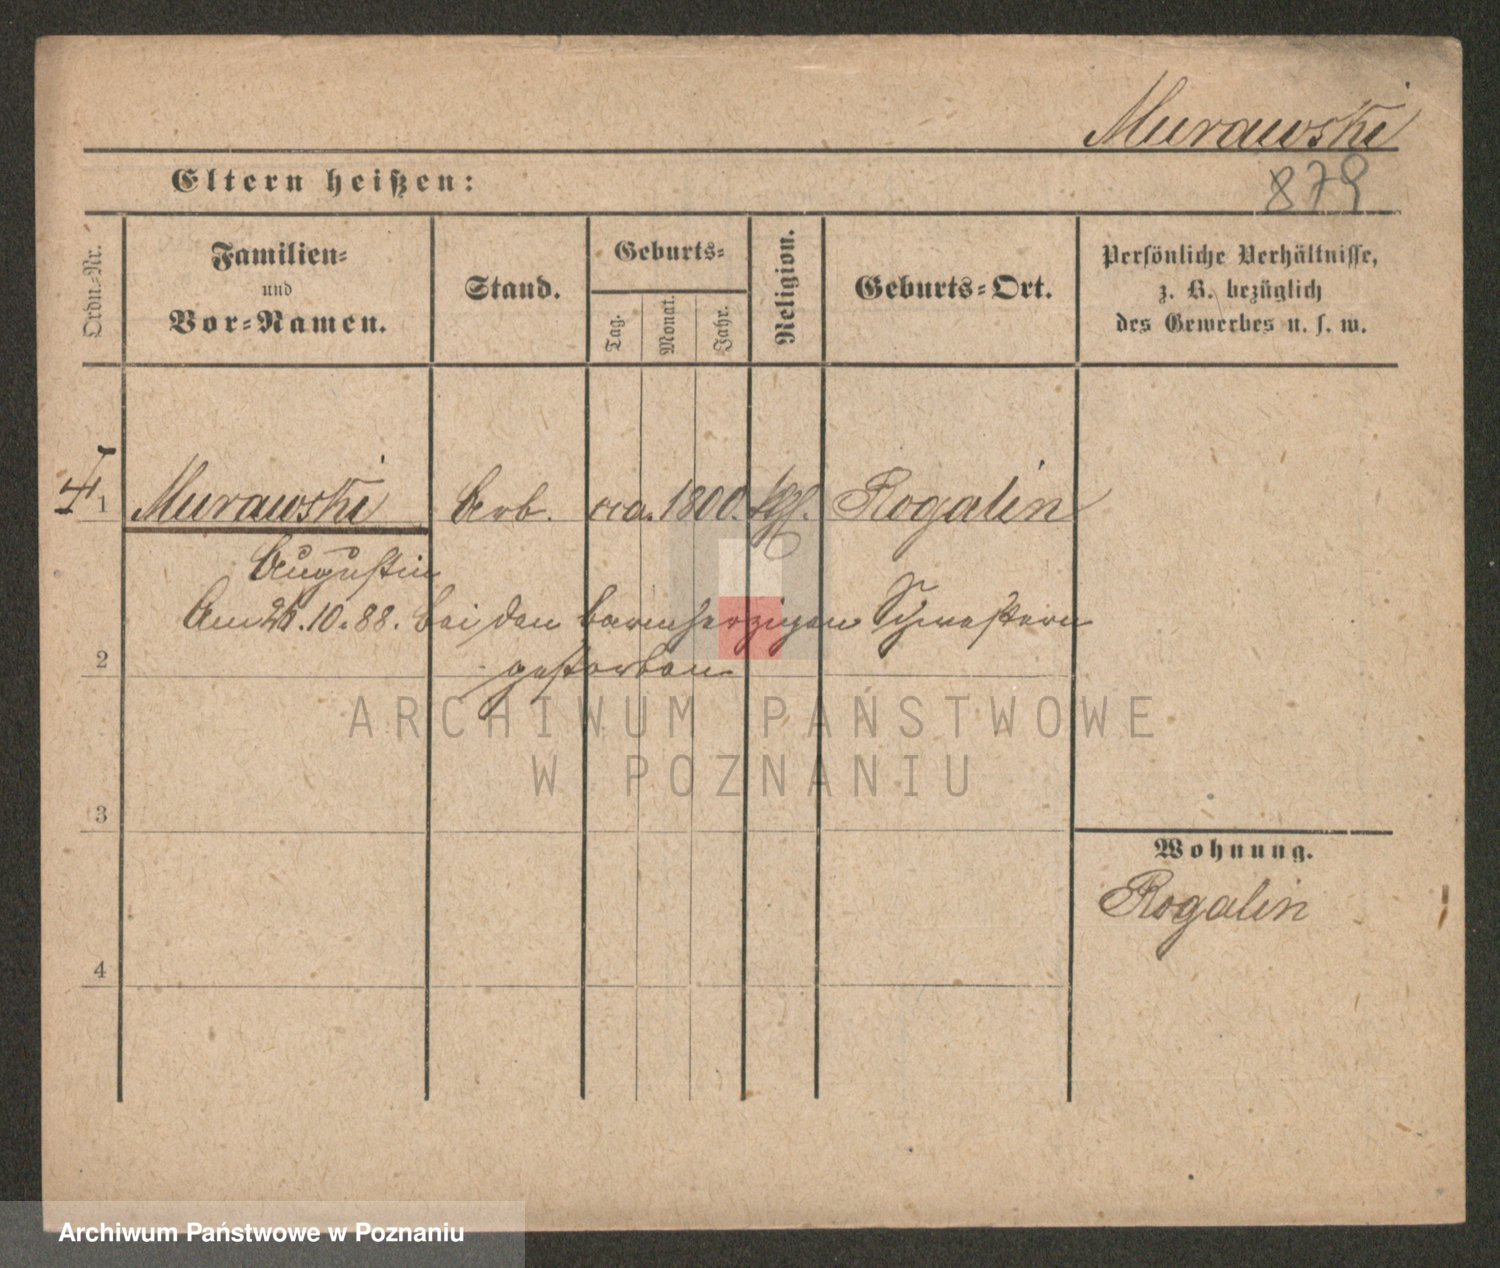 Murawski
879
Eltern heißen:
Ordn.-Nr.
Familien-
und
Vor-Namen.
Stand.
Geburts-
Tag.
Monat.
Jahr.
Religion.
Geburts-Ort.
Persönliche Verhältnisse,
z. B. bezüglich
des Gewerbes u. s. w.
1 Murawski Arb. ca. 1800. kth. Rogalin
Augustin
Am 26.10.88. bei den barmherzigen Schwestern
gestorben
2
ARCHIWUM PAŃSTWOWE
W POZNANIU
3
Wohnung.
Rogalin
4
Archiwum Państwowe w Poznaniu